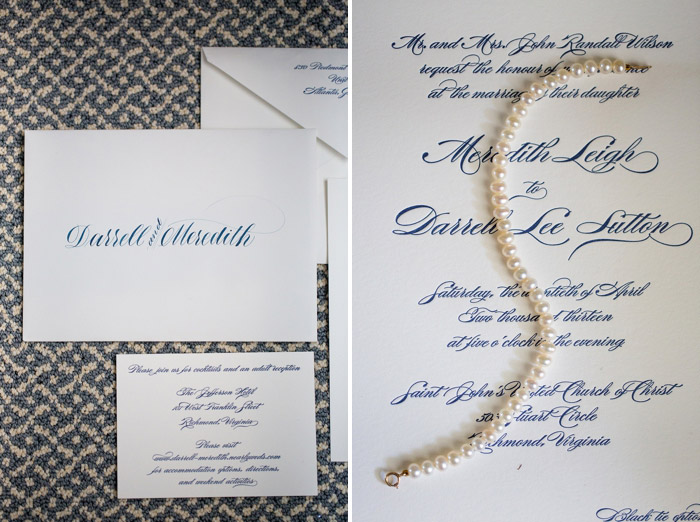 Piedmont
West
Atlanta, G
Darrell and Meredith
Please join us for cocktails and an adult reception
The Jefferson Hotel
101 West Franklin Street
Richmond, Virginia
Please visit
www.darrell-meredith.nearlyweds.com
for accommodation options, directions,
and weekend activities
Mr. and Mrs. John Randall Wilson
request the honour of nce
at the marriage their daughter
Meredith Leigh
to
Darrell Lee Sutton
Saturday, the ntieth of April
Two thousa d thirteen
at five o'clock i the evening
Saint John's ted Church of Christ
Stuart Circle
Richmond, Virginia
Black tie option